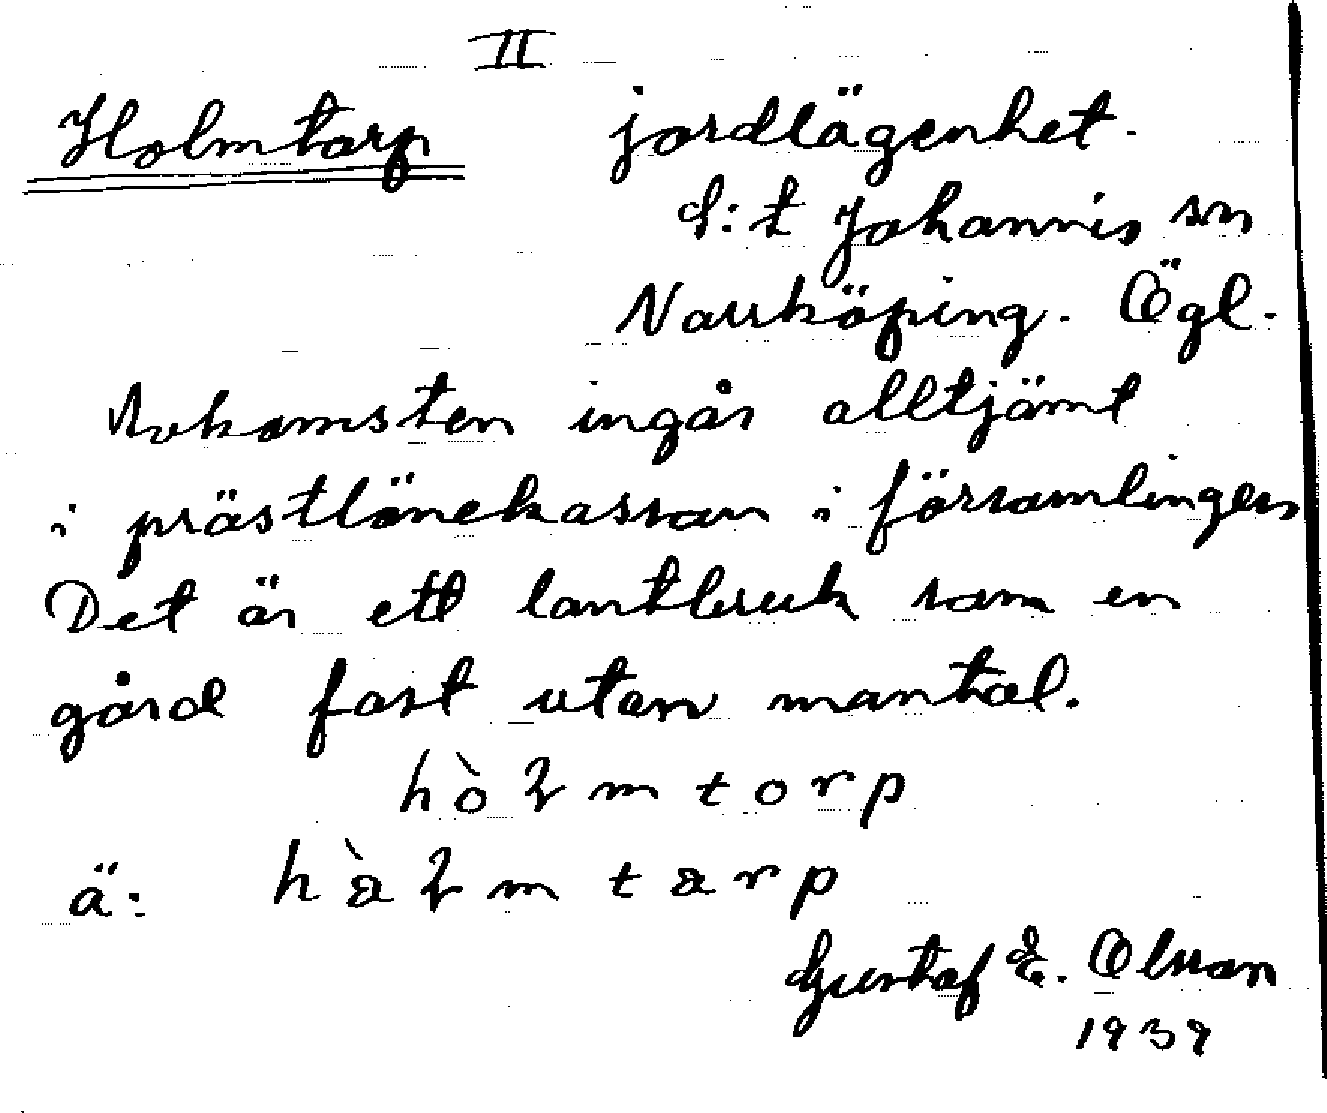 II
Holmtorp jordlägenhet.
S:t Johannis sn
Norrköping. Ögl.
Avkomsten ingår alltjämt
i prästlönekassan i församlingen
Det är ett lantbruk som en
gård fast utan mantal.
hòɫmtorp
ä: hàɫmtarp
Gustaf E. Olsson
1939